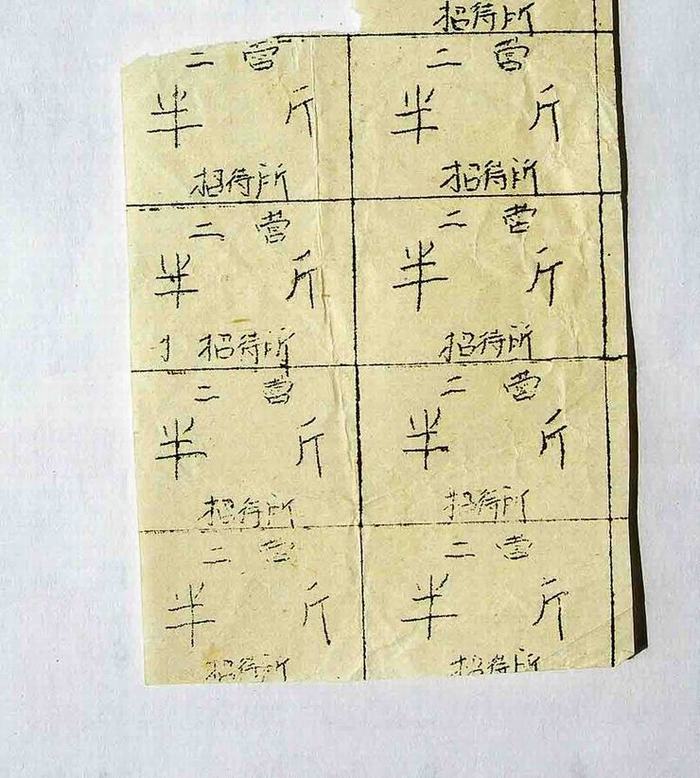 招待所
二 营 二 营
半 斤 半 斤
招待所 招待所
二 营 二 营
半 斤 半 斤
招待所 招待所
二 营 二 营
半 斤 半 斤
招待所 招待所
二 营 二 营
半 斤 半 斤
招待所 招待所